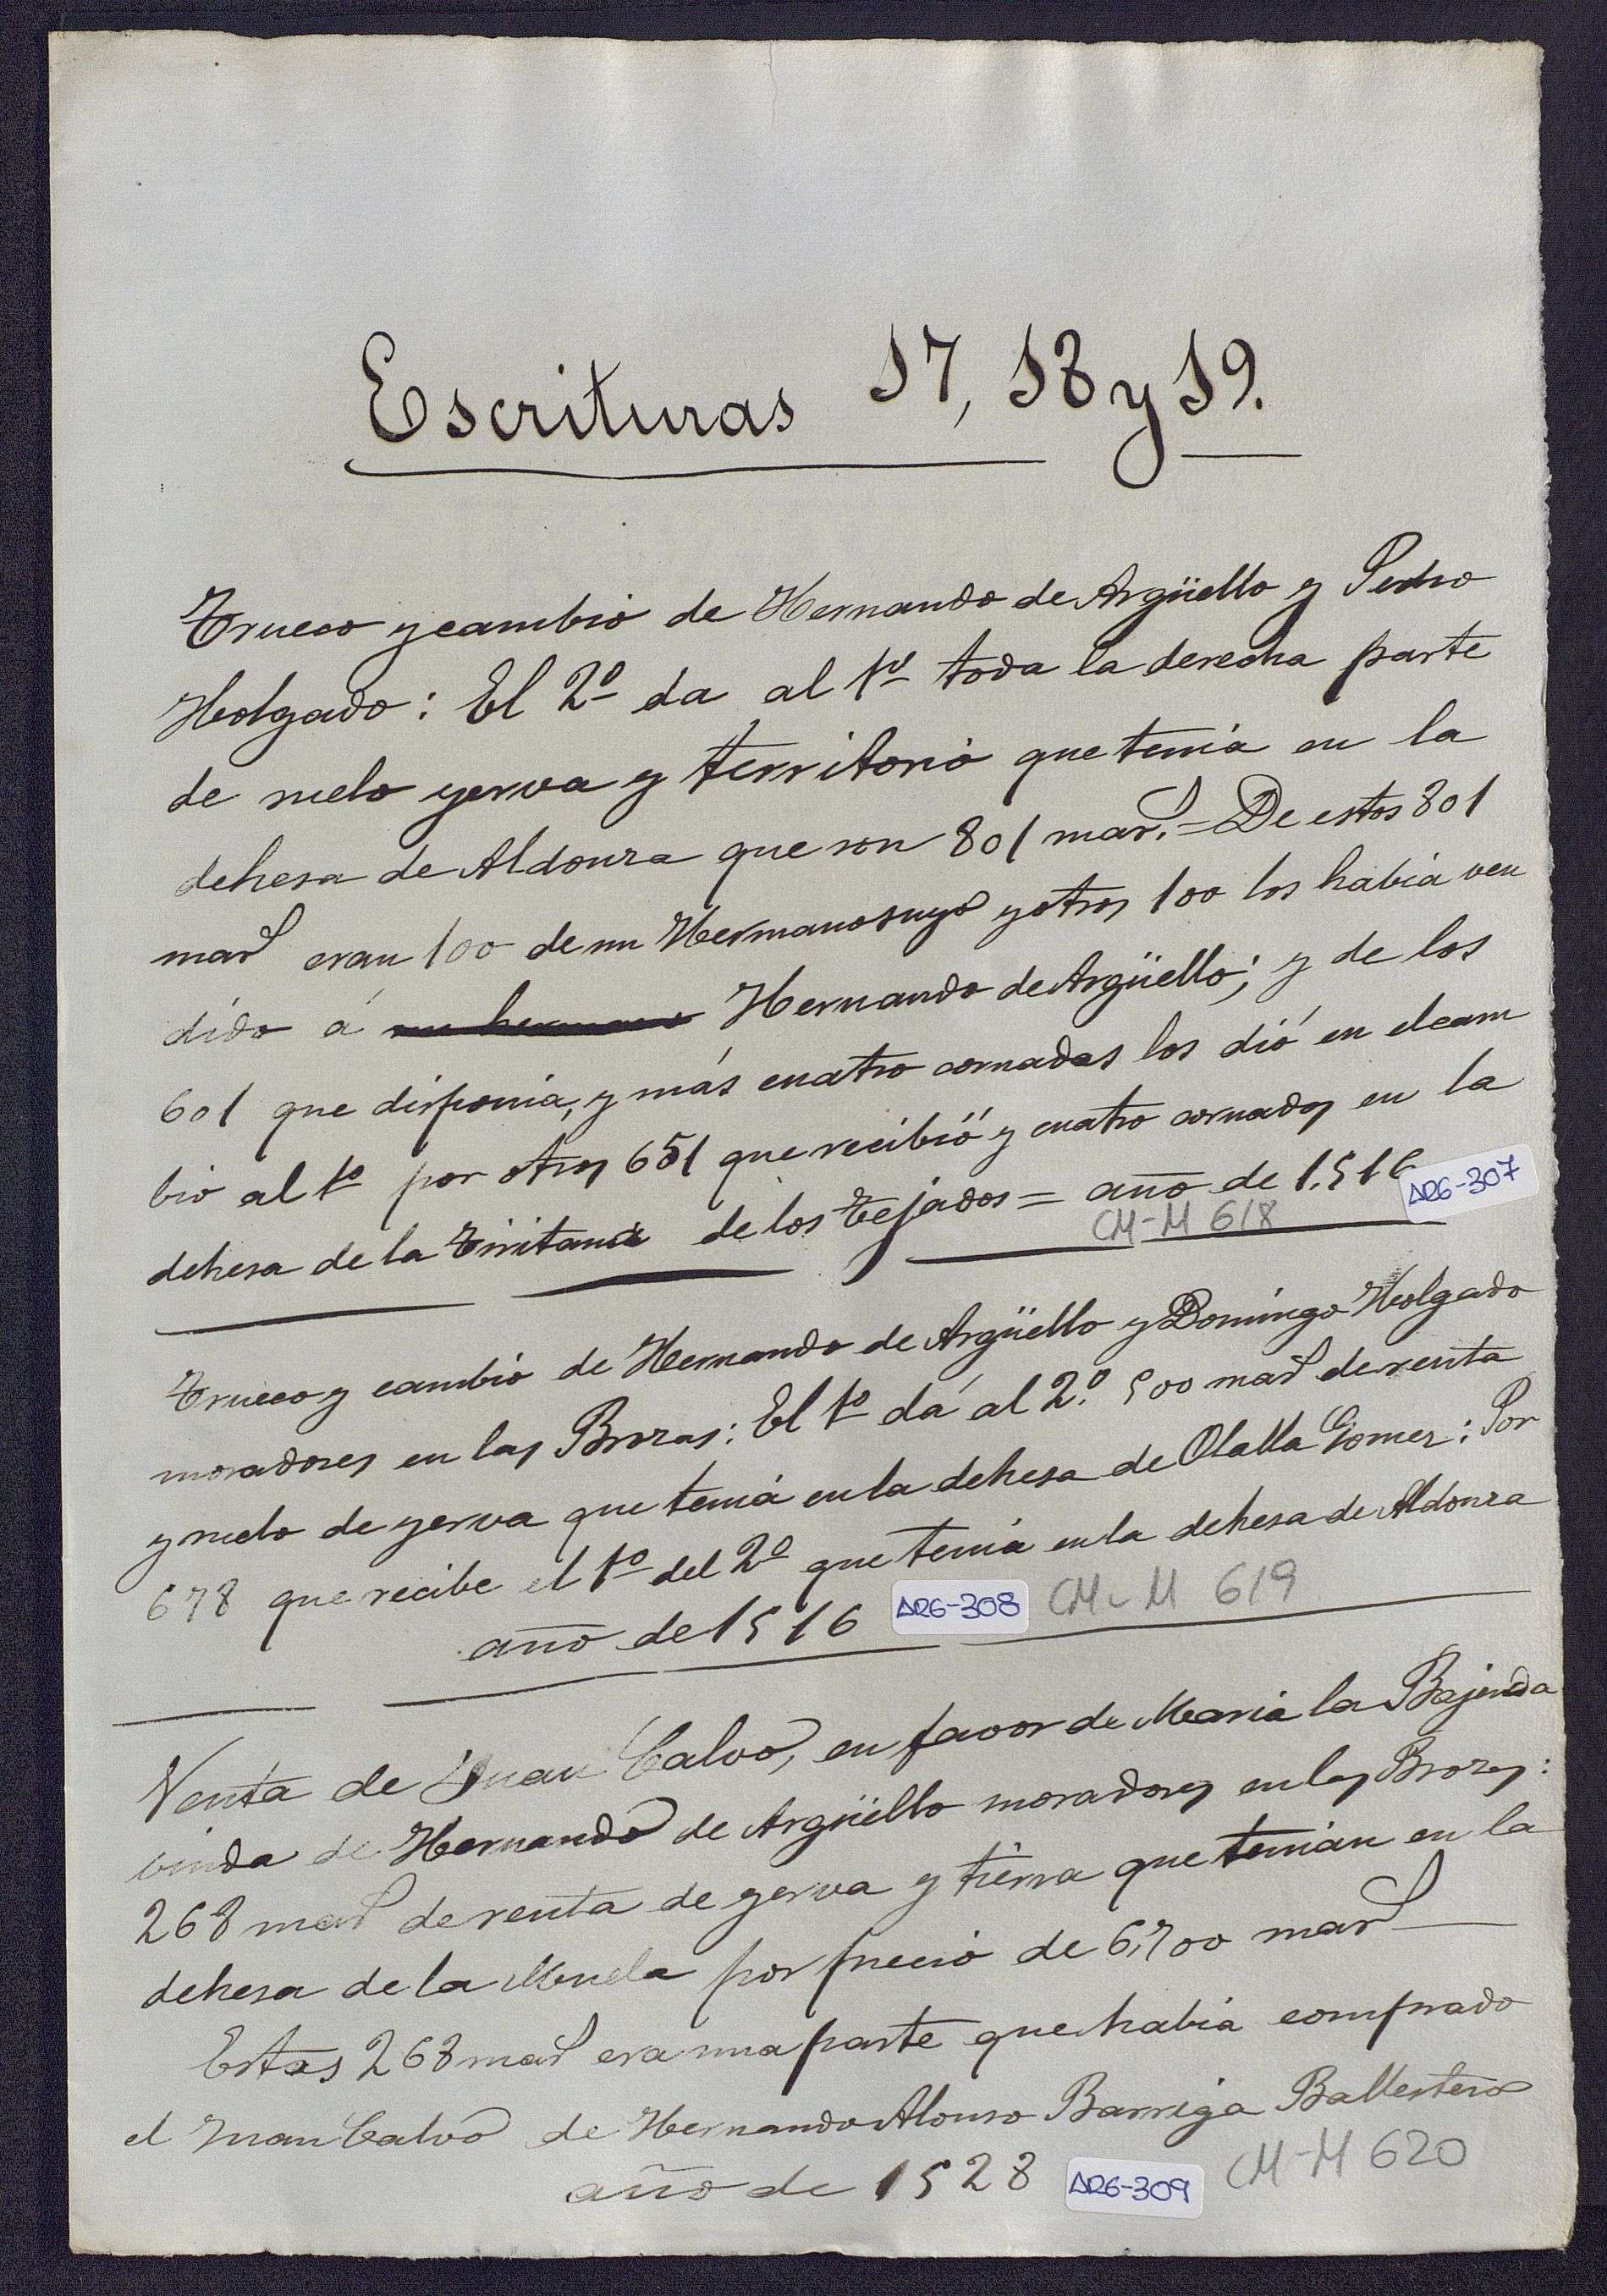 Escrituras 17, 18 y 19.
Trueco y cambio de Hernando de Argüello y Pedro
Holgado: El 2º da al 1º toda la derecha parte
de suelo yerva y territorio que tenia en la
dehesa de Aldonza que son 801 mars. = De estos 801
mars eran 100 de un Hermano suyo y otros 100 los habia ven
dido á un hermano Hernando de Argüello; y de los
601 que disponia, y más cuatro cornadas los dió en el cam
bio al 1º por otros 651 que recibió y cuatro cornados en la
dehesa de la de los Tejados = año de 1.516
ARG-307
CM-M 618
Trueco y cambio de Hernando de Argüello y Domingo Holgado
moradores en las Brozas: El 1º dá al 2.º 500 mars de renta
y suelo de yerva que tenia en la dehesa de Olalla Gomez: Por
678 que recibe el 1º del 2º que tenia en la dehesa de Aldonza
año de 1516 ARG-308 CM-M 619
Venta de Juan Calvo, en favor de Maria la
viuda de Hernando de Argüello moradores en las Brozas:
268 mars de renta de yerva y tierra que tenian en la
dehesa de la Muela por precio de 6,700 mars
Estas 268 mars era una parte que habia comprado
el Juan Calvo de Hernando Alonso Barriga Ballestero
año de 1528 ARG-309 CM-M 620